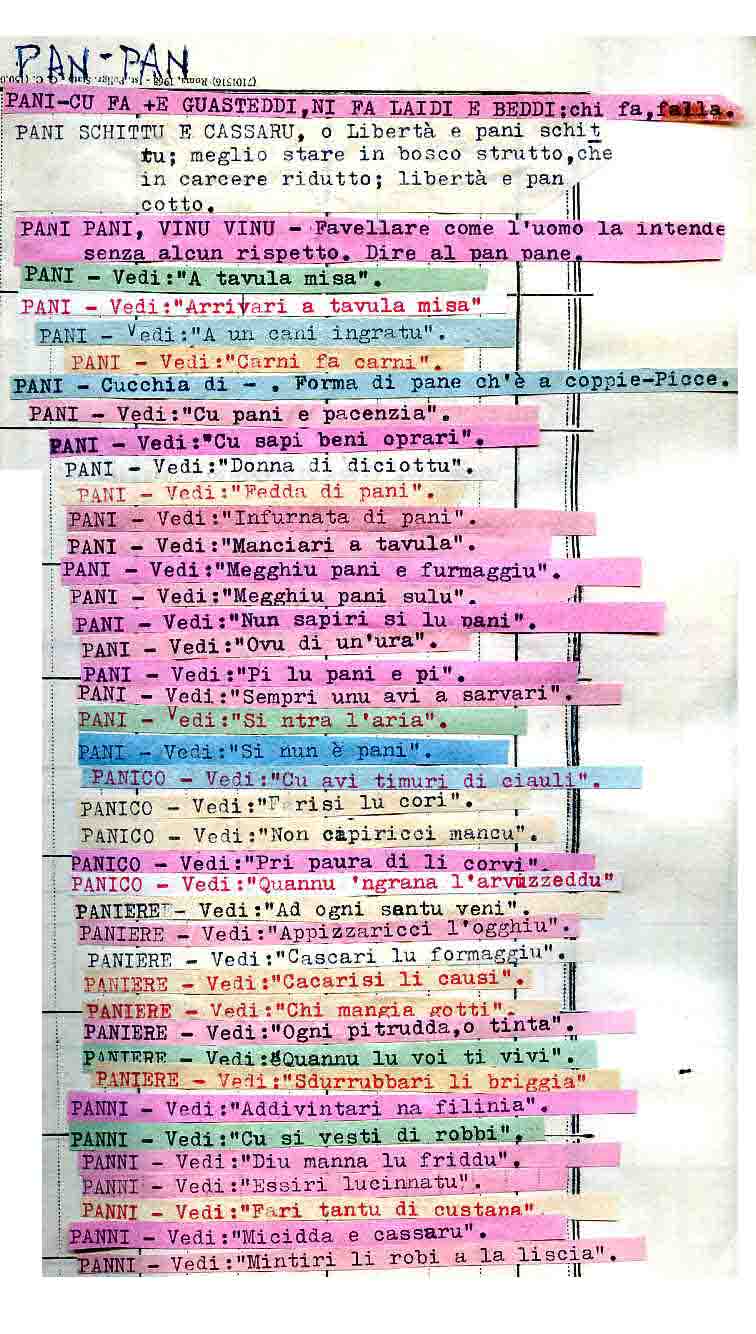 PAN-PAN
(7101516) Roma, 1968 - Ist. Poligr. Stato
PANI-CU FA +E GUASTEDDI,NI FA LAIDI E BEDDI;chi fa,falla.
PANI SCHITTU E CASSARU, o Libertà e pani schit
tu; meglio stare in bosco strutto,che
in carcere ridutto; libertà e pan
cotto.
PANI PANI, VINU VINU - Favellare come l'uomo la intende
senza alcun rispetto. Dire al pan pane.
PANI - Vedi:"A tavula misa".
PANI - Vedi:"Arrivari a tavula misa"
PANI - Vedi:"A un cani ingratu".
PANI - Vedi:"Carni fa carni".
PANI - Cucchia di - . Forma di pane ch'è a coppie-Picce.
PANI - Vedi:"Cu pani e pacenzia".
PANI - Vedi:"Cu sapi beni oprari".
PANI - Vedi:"Donna di diciottu".
PANI - Vedi:"Fedda di pani".
PANI - Vedi:"Infurnata di pani".
PANI - Vedi:"Manciari a tavula".
PANI - Vedi:"Megghiu pani e furmaggiu".
PANI - Vedi:"Megghiu pani sulu".
PANI - Vedi:"Nun sapiri si lu pani".
PANI - Vedi:"Ovu di un'ura".
PANI - Vedi:"Pi lu pani e pi".
PANI - Vedi:"Sempri unu avi a sarvari".
PANI - Vedi:"Si ntra l'aria".
PANI - Vedi:"Si nun è pani".
PANICO - Vedi:"Cu avi timuri di ciauli".
PANICO - Vedi:"Farisi lu cori".
PANICO - Vedi:"Non capiricci mancu".
PANICO - Vedi:"Pri paura di li corvi"
PANICO - Vedi:"Quannu 'ngrana l'arvuzzeddu"
PANIERE - Vedi:"Ad ogni santu veni".
PANIERE - Vedi:"Appizzaricci l'ogghiu".
PANIERE - Vedi:"Cascari lu formaggiu".
PANIERE - Vedi:"Cacarisi li causi".
PANIERE - Vedi:"Chi mangia gotti".
PANIERE - Vedi:"Ogni pitrudda,o tinta".
PANIERE - Vedi:"Quannu lu voi ti vivi".
PANIERE - Vedi:"Sdurrubbari li briggia"
PANNI - Vedi:"Addivintari na filinia".
PANNI - Vedi:"Cu si vesti di robbi",
PANNI - Vedi:"Diu manna lu friddu".
PANNI - Vedi:"Essiri lucinnatu".
PANNI - Vedi:"Fari tantu di custana"
PANNI - Vedi:"Micidda e cassaru".
PANNI - Vedi:"Mintiri li robi a la liscia".